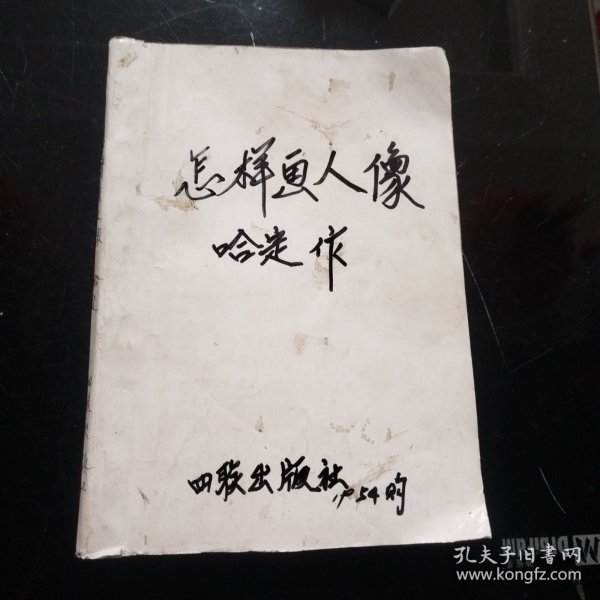 怎样画人像
哈定作
四联出版社
1954购
孔夫子旧书网
www.kongfz.com